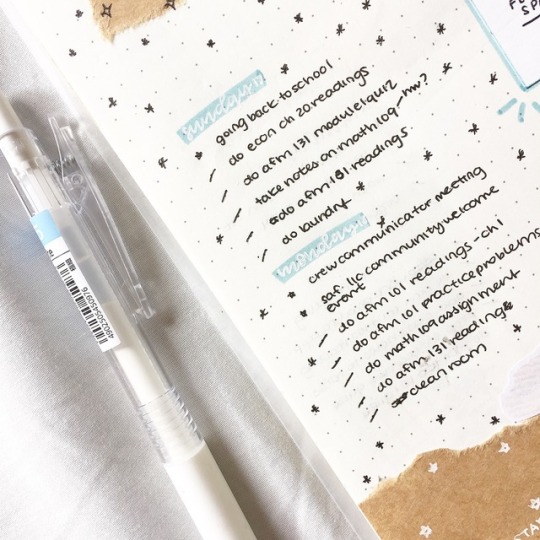 sunday.17
going back to school
do econ ch 20 readings
do afm 131 module 1 quiz
take notes on math 109 - hw?
do afm 181 readings
do laundry
monday.18
crew communicator meeting
saf. llc community welcome
event
do afm 101 readings - ch 1
do afm 101 practice problems
do math 109 assignment
do afm 131 readings
clean room
4902505450976